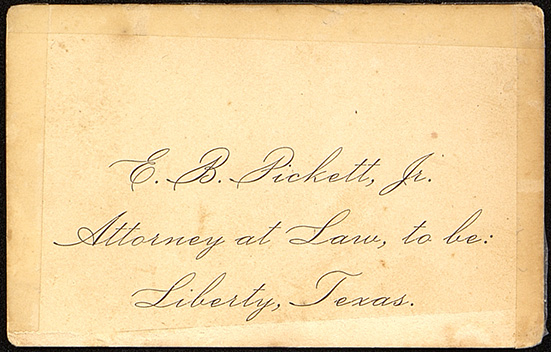 E. B. Pickett, Jr.
Attorney at Law, to be:
Liberty, Texas.